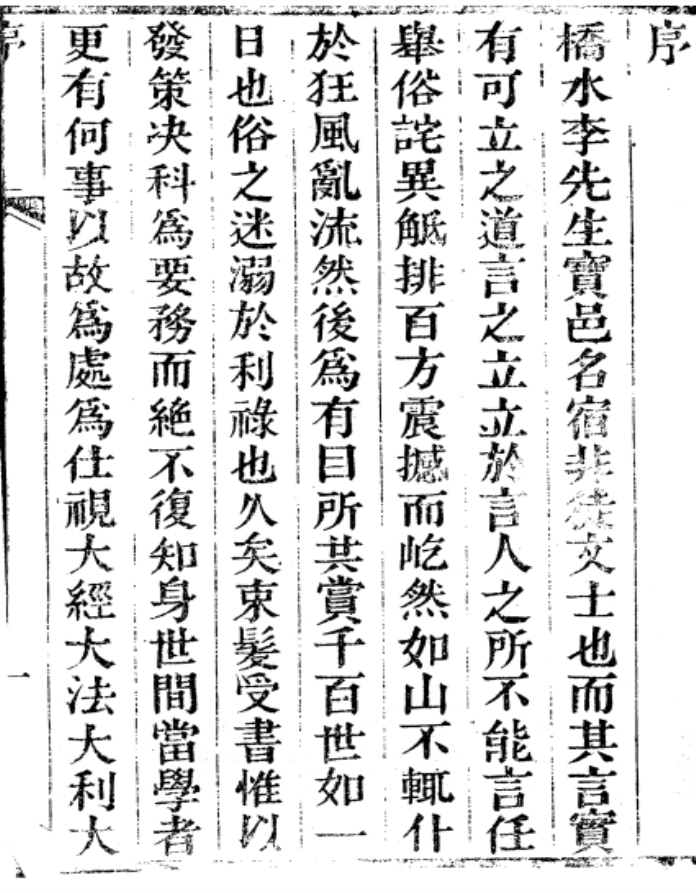 序
橋水李先生寶邑名宿非徒文士也而其言實
有可立之道言之立立於言人之所不能言任
舉俗詫異觝排百方震撼而屹然如山不輒仆
於狂風亂流然後爲有目所共賞千百世如一
日也俗之迷溺於利祿也久矣束髮受書惟以
發策决科爲要務而絶不復知身世間當學者
更有何事以故爲處爲仕視大經大法大利大
序
一